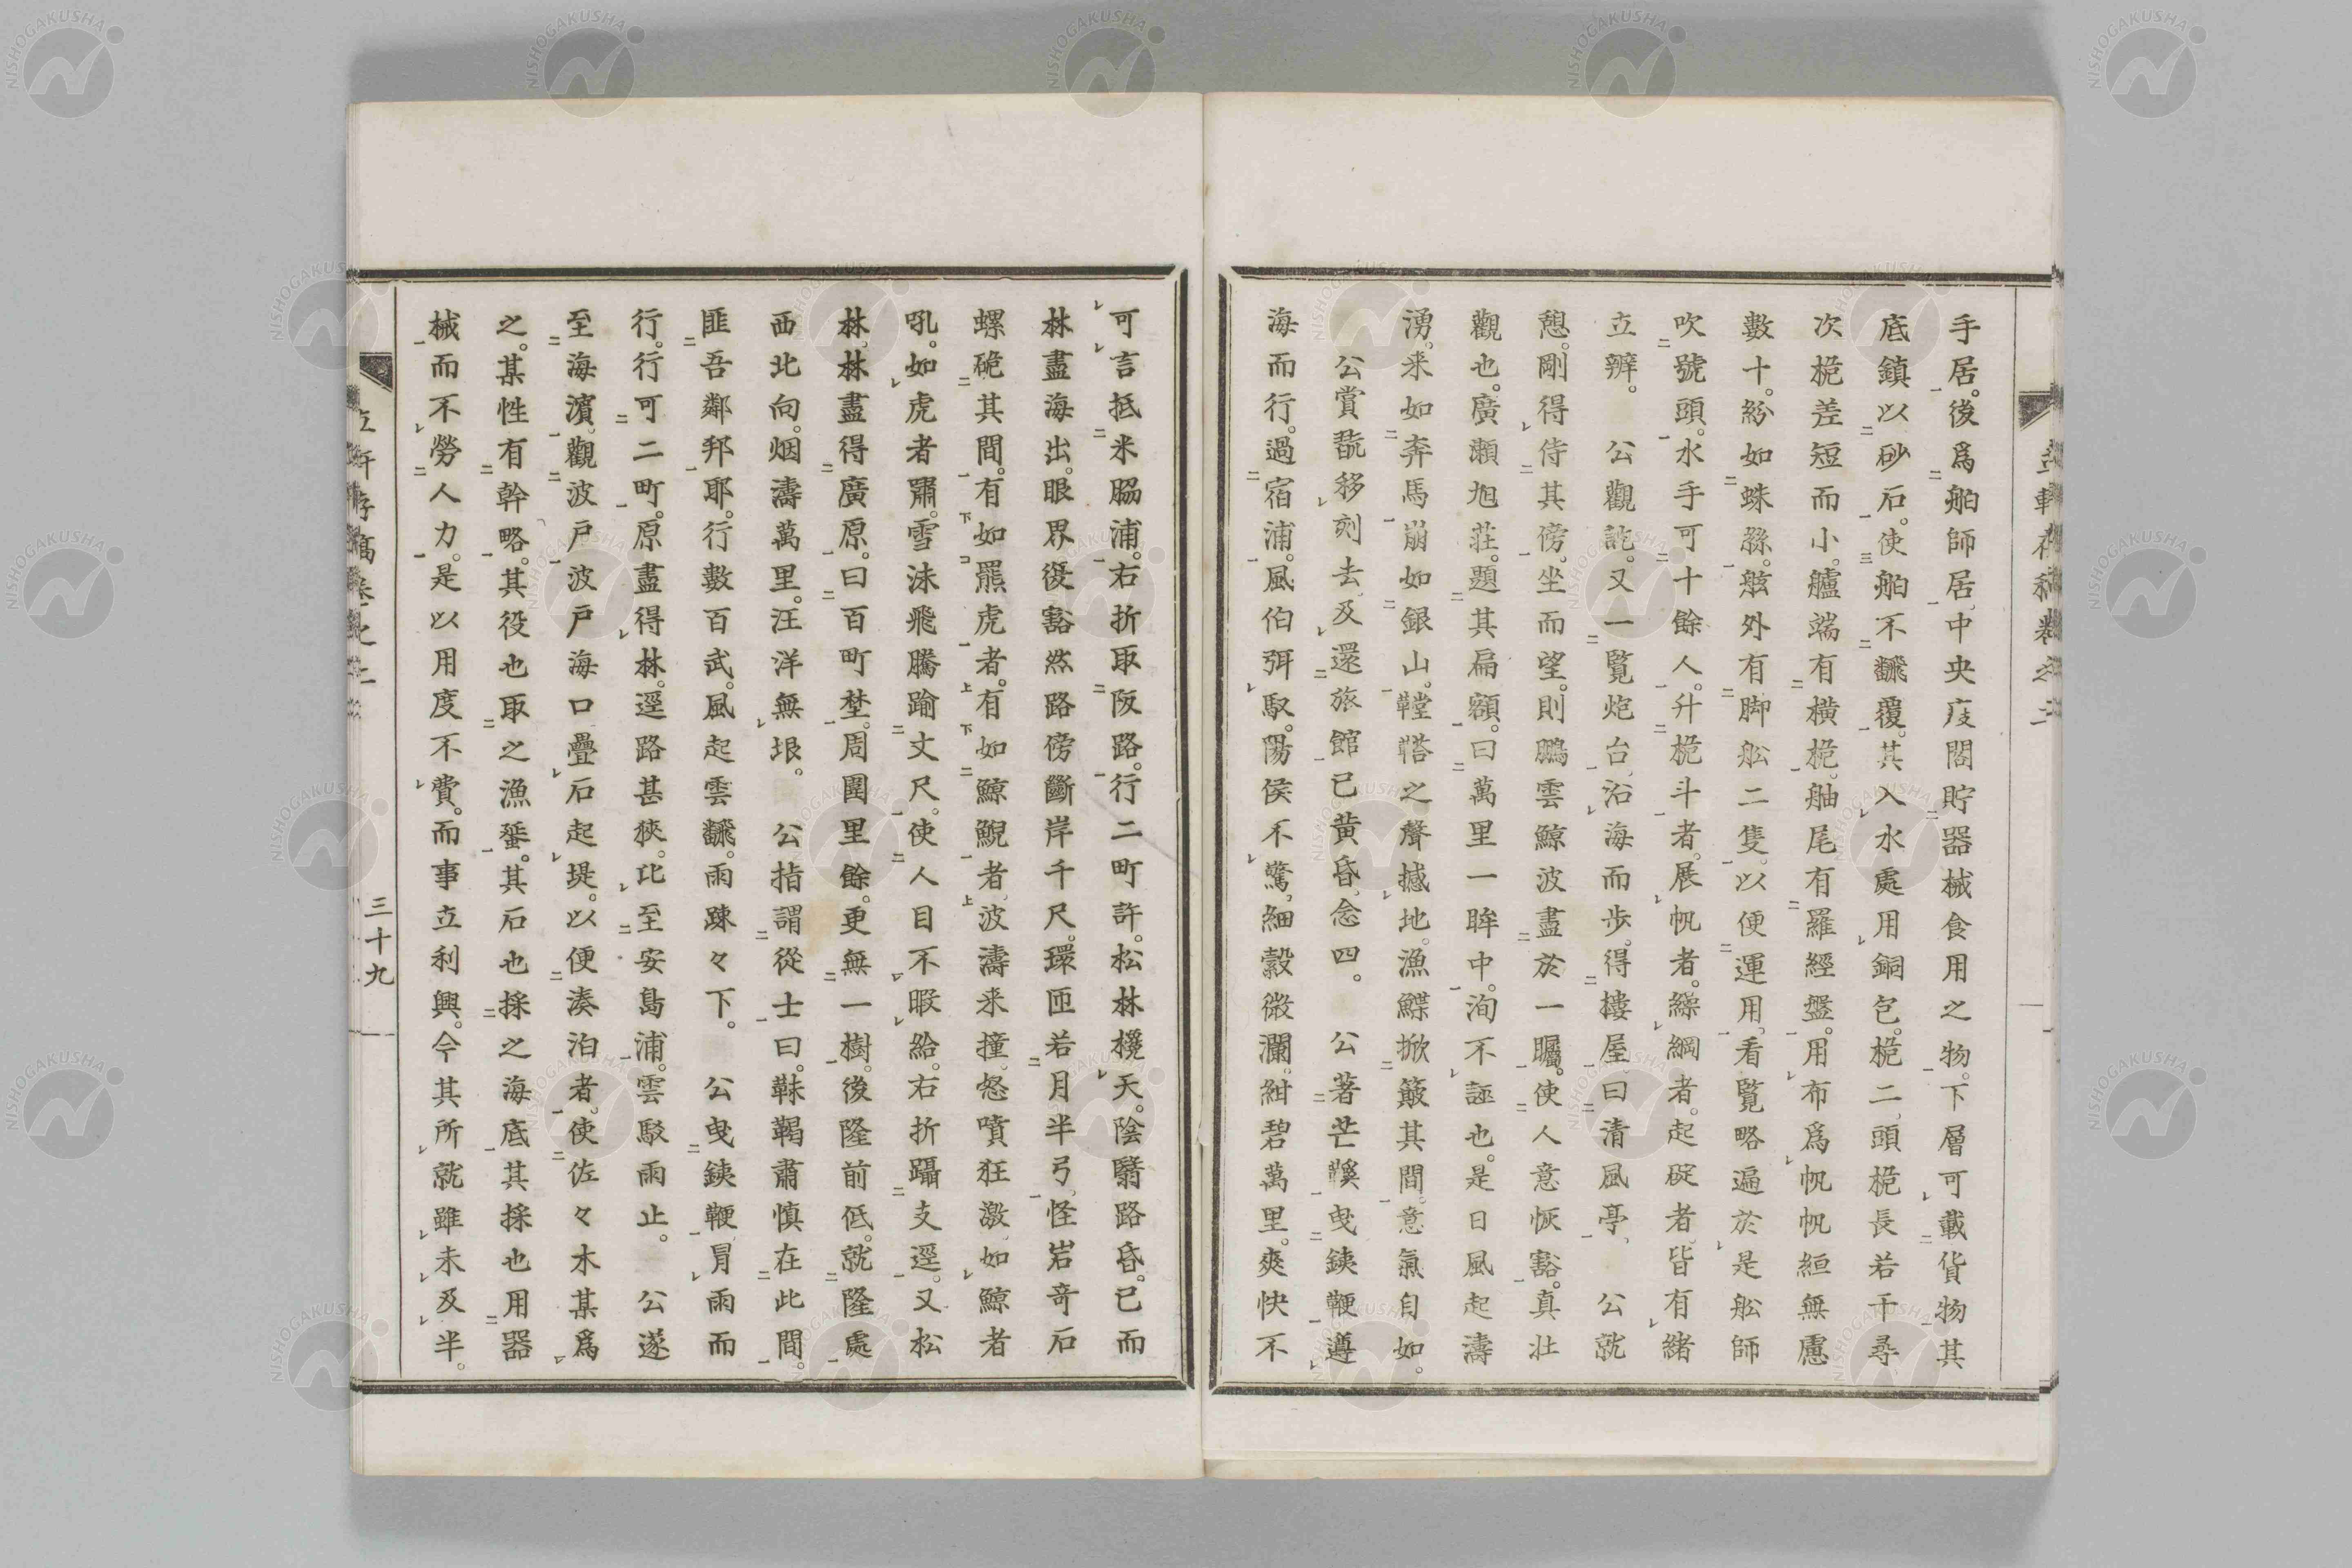 手居。後爲舶師居、中央庋閣貯器械食用之物。下層可載貨物其
底鎮以砂石。使舶不飜覆。其入水處用銅包。桅二、頭桅長若干尋
次桅差短而小。艫端有横桅。舳尾有羅經盤。用布爲帆帆絙無慮
數十。紛如蛛綠。舷外有脚舩二隻。以便運用、看覽略遍於是舩師
吹號頭。水手可十餘人。升桅斗者。展帆者。繰綱者。起碇者、皆有緒
立辨。　公觀訖。又一覽炮台、沿海而歩。得樓屋、曰清風亭、　公就
憩。剛得侍其傍。坐而望。則鵬雲鯨波盡於一矚。使人意恢豁。真壮
觀也。廣瀬旭荘。題其扁額。曰萬里一眸中。洵不誣也。是日風起濤
湧。来如奔馬崩如銀山。鞺鞳之聲撼地。漁鰈掀簸其間。意氣自如。
公賞翫移刻去、及還旅館已黄昏、念四。　公著芒鞵曳銕鞭遵
海而行。過宿浦。風伯弭馭。陽侯不驚、細縠微瀾。紺碧萬里。爽快不
可言抵米脇浦。右折取阪路。行二町許。松林欃天。陰翳路昏。已而
林盡海出。眼界復豁然路傍斷岸千尺。環匝若月半弓、怪岩奇石
螺硊其間。有如羆虎者。有如鯨鯢者、波濤来撞。怒噴狂激、如鯨者
吼。如虎者嘯。雪沫飛騰踰丈尺。使人目不暇給。右折躡支逕。又松
林、林盡得廣原。曰百町埜。周圍里餘。更無一樹。後隆前低。就隆處
西北向。烟濤萬里。汪洋無垠。　公指謂從士曰。靺鞨肅慎在此間。
匪吾鄰邦耶。行數百武。風起雲飜。雨踈々下。　公曳銕鞭冐雨而
行。行可二町。原盡得林。逕路甚狹。比至安島浦。雲駁雨止。　公遂
至海濵。觀波戸。波戸海口疊石起堤。以便湊泊者。使佐々木某爲
之。某性有幹略。其役也取之漁蜑。其石也採之海底。其採也用器
械而不勞人力。是以用度不費。而事立利興。今其所就雖未及半。
三十九